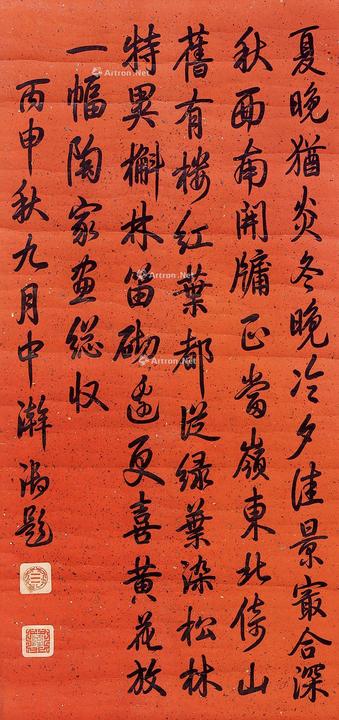 夏晚猶炎冬晚冷夕佳景㝡合深
秋面南開牖正當嶺東北倚山
舊有樓紅葉都從綠葉染松林
特異槲林笛砌邊更喜黃花放
一幅陶家畫総收
丙申秋九月中澣御題
Artron.Net
Artron.Net
Artron.Net
Artron.Net